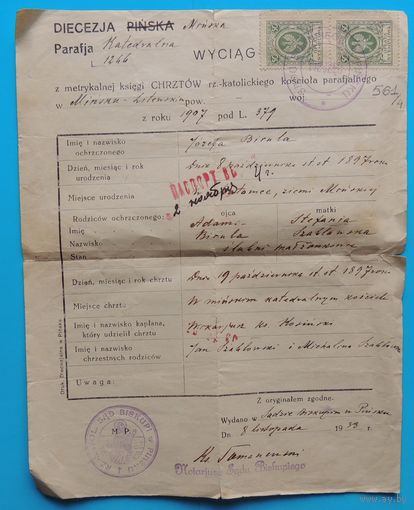 DIECEZJA PIŃSKA Mińska
Parafja Katedralna
1246
WYCIĄG
z metrykalnej księgi CHRZTÓW rz.-katolickiego kościoła parafjalnego
w Mińsku-Litewskim pow. — woj. —
561/4
z roku 1907 pod L. 379
Imię i nazwisko ochrzczonego: Józefa Birula
Dzień, miesiąc i rok urodzenia Dnia 8 października st. st. 1897 roku
ПАСПОРТ ВС
2 ноября
Miejsce urodzenia ziemi Mińskiej
Rodziców ochrzczonego: ojca matki
Imię Adam Stefania
Nazwisko Birula Szabłowska
Stan ślubni małżonkowie
Dzień, miesiąc i rok chrztu Dnia 19 października st. st. 1897 roku
Miejsce chrztu W mińskim katedralnym kościele
Imię i nazwisko kapłana, który udzielił chrztu Wikarjusz ks. Kosiński
Imię i nazwisko chrzestnych rodziców Jan Szabłowski i Michalina Szabłowska
Uwaga:
Druk. Diecezjalna w Pińsku
Z oryginałem zgodne.
Wydano w Sądzie Biskupim w Pińsku
Dn. 8 listopada 1933 r.
M. P.
SĄD BISKUPI w PIŃSKU
Ks.
Notarjusz Sądu Biskupiego
ay.by